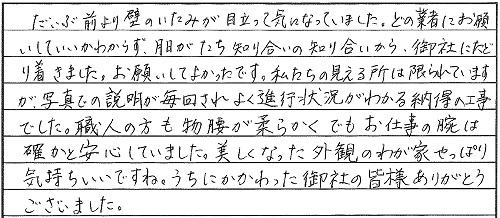 だいぶ前より壁のいたみが目立って気になっていました。どの業者にお願
いしていいかわからず、月日がたち知り合いの知り合いから、御社にたど
り着きました。お願いしてよかったです。私たちの見える所は限られています
が、写真での説明が毎回されよく進行状況がわかる納得の工事
でした。職人の方も物腰が柔らかくでもお仕事の腕は
確かと安心していました。美しくなった外観のわが家やっぱり
気持ちいいですね。うちにかかわった御社の皆様ありがとう
ございました。